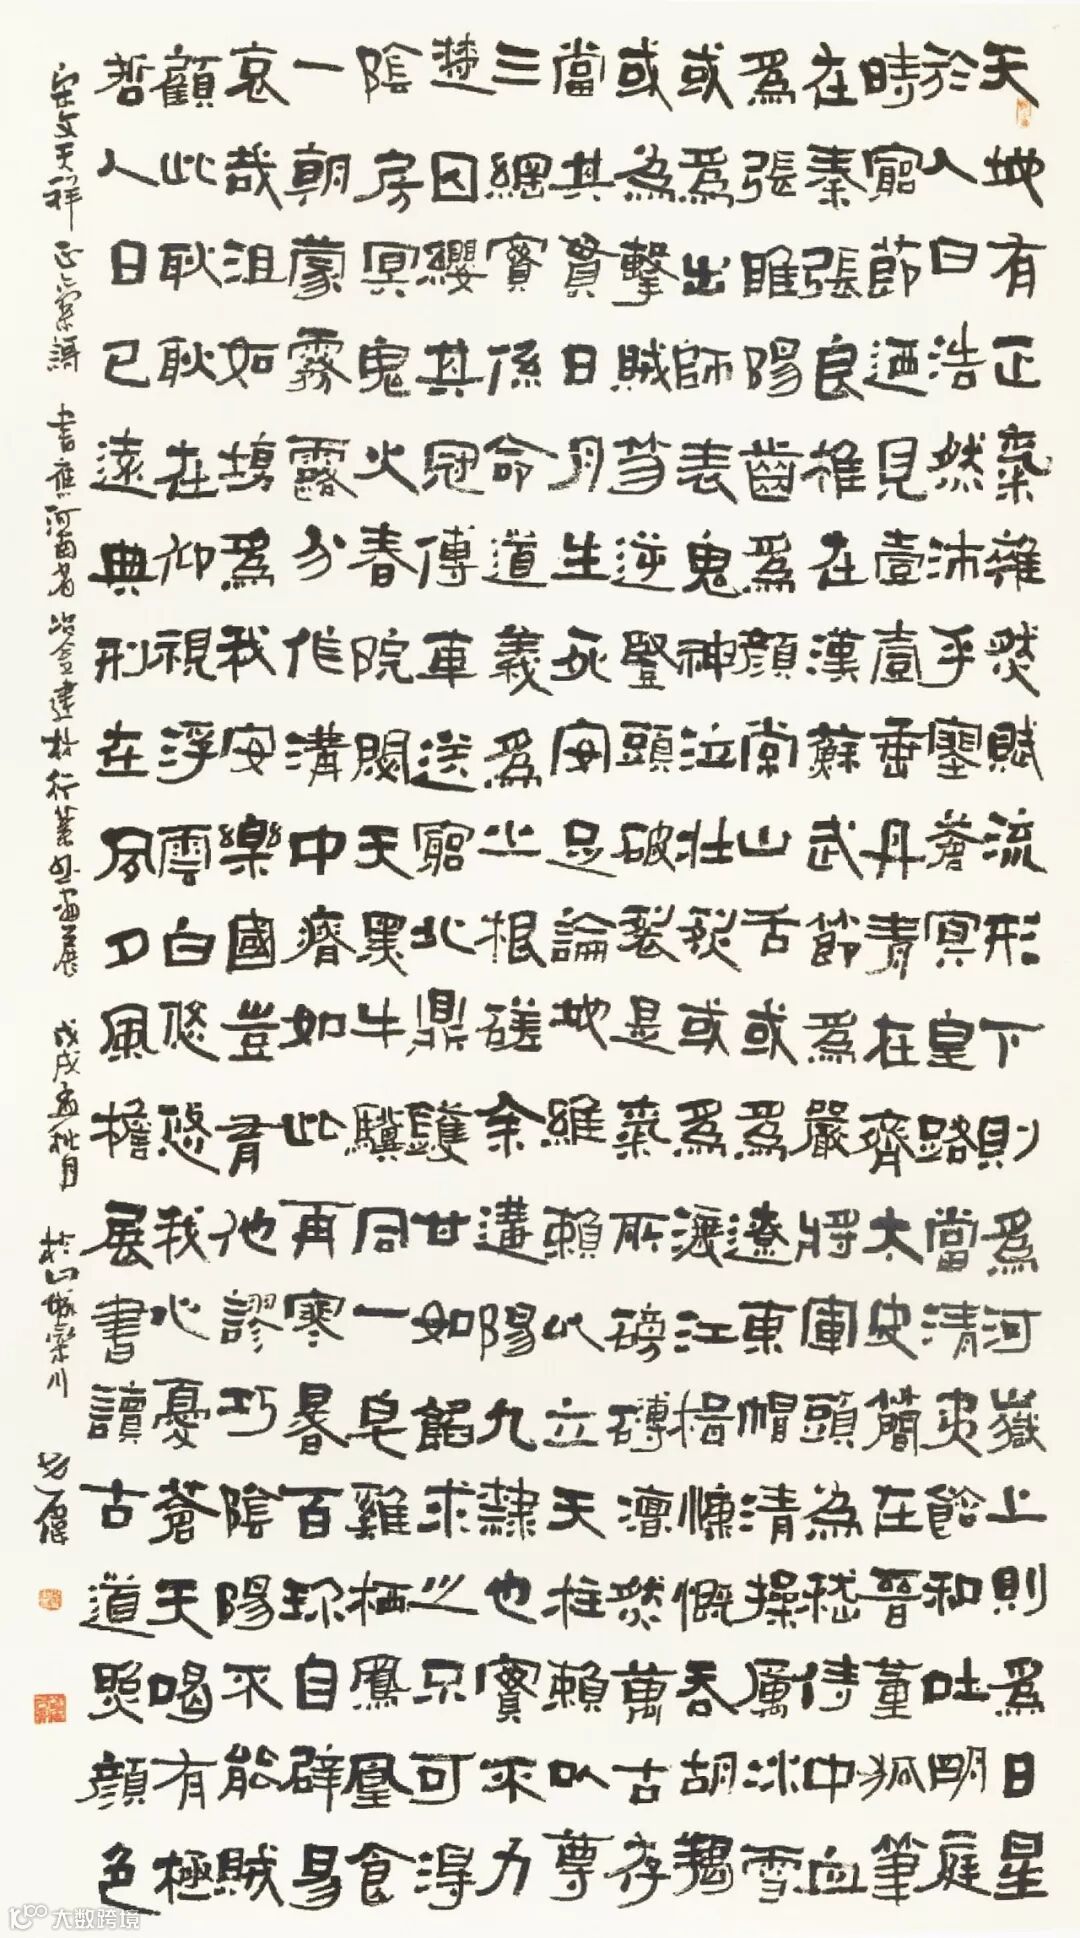 天地有正氣雜然賦流形下則為河嶽上則為日星
於人曰浩然沛乎塞蒼冥皇路當清夷含和吐明庭
時窮節迺見壹壹垂丹青在齊太史簡在晉董狐筆
在秦張良椎在漢蘇武節為嚴將軍頭為嵇侍中血
為張睢陽齒為顏常山舌或為遼東帽清操厲冰雪
或為出師表鬼神泣壯烈或為渡江楫慷慨吞胡羯
或為擊賊笏逆豎頭破裂是氣所磅礴凜然萬古存
當其貫日月生死安足論地維賴以立天柱賴以尊
三綱實係命道義為之根嗟余遘陽九隸也實不力
楚囚纓其冠傳車送窮北鼎鑊甘如飴求之不可得
陰房冥鬼火春院閟天黑牛驥同一皂雞栖鳳凰食
一朝蒙霧露分作溝中瘠如此再寒暑百沴自辟易
哀哉沮如場為我安樂國豈有他謬巧陰陽不能賊
顧此耿耿在仰視浮雲白悠悠我心憂蒼天喝有極
哲人日已遠典刑在夙夕風檐展書讀古道照顏色
宋文天祥 正氣謌 書應河南省冶金建材行業書畫展 戊戌孟秋月 於山城欒川
大数跨境